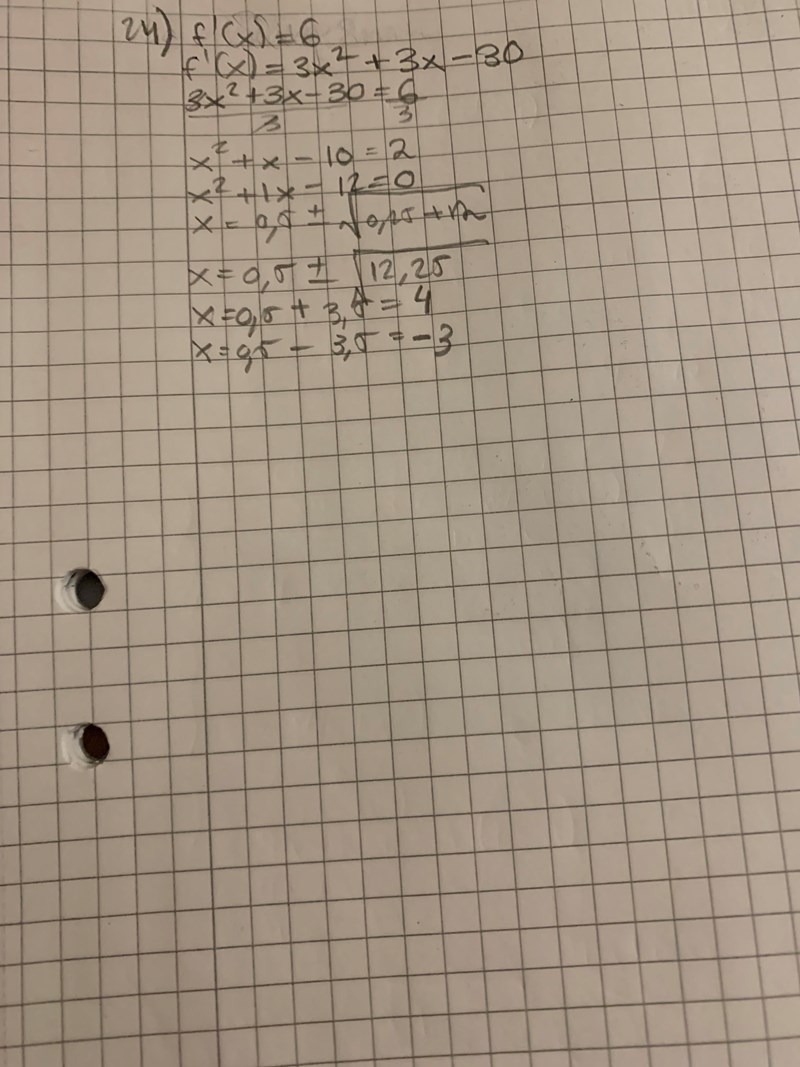 24) f'(x) = 6
f'(x) = 3x² + 3x - 30
3x² + 3x - 30 = 6
3 3
x² + x - 10 = 2
x² + 1x - 12 = 0
x = 0,5 ± √0,25 + 12
x = 0,5 ± √12,25
x = 0,5 + 3,5 = 4
x = 0,5 - 3,5 = -3